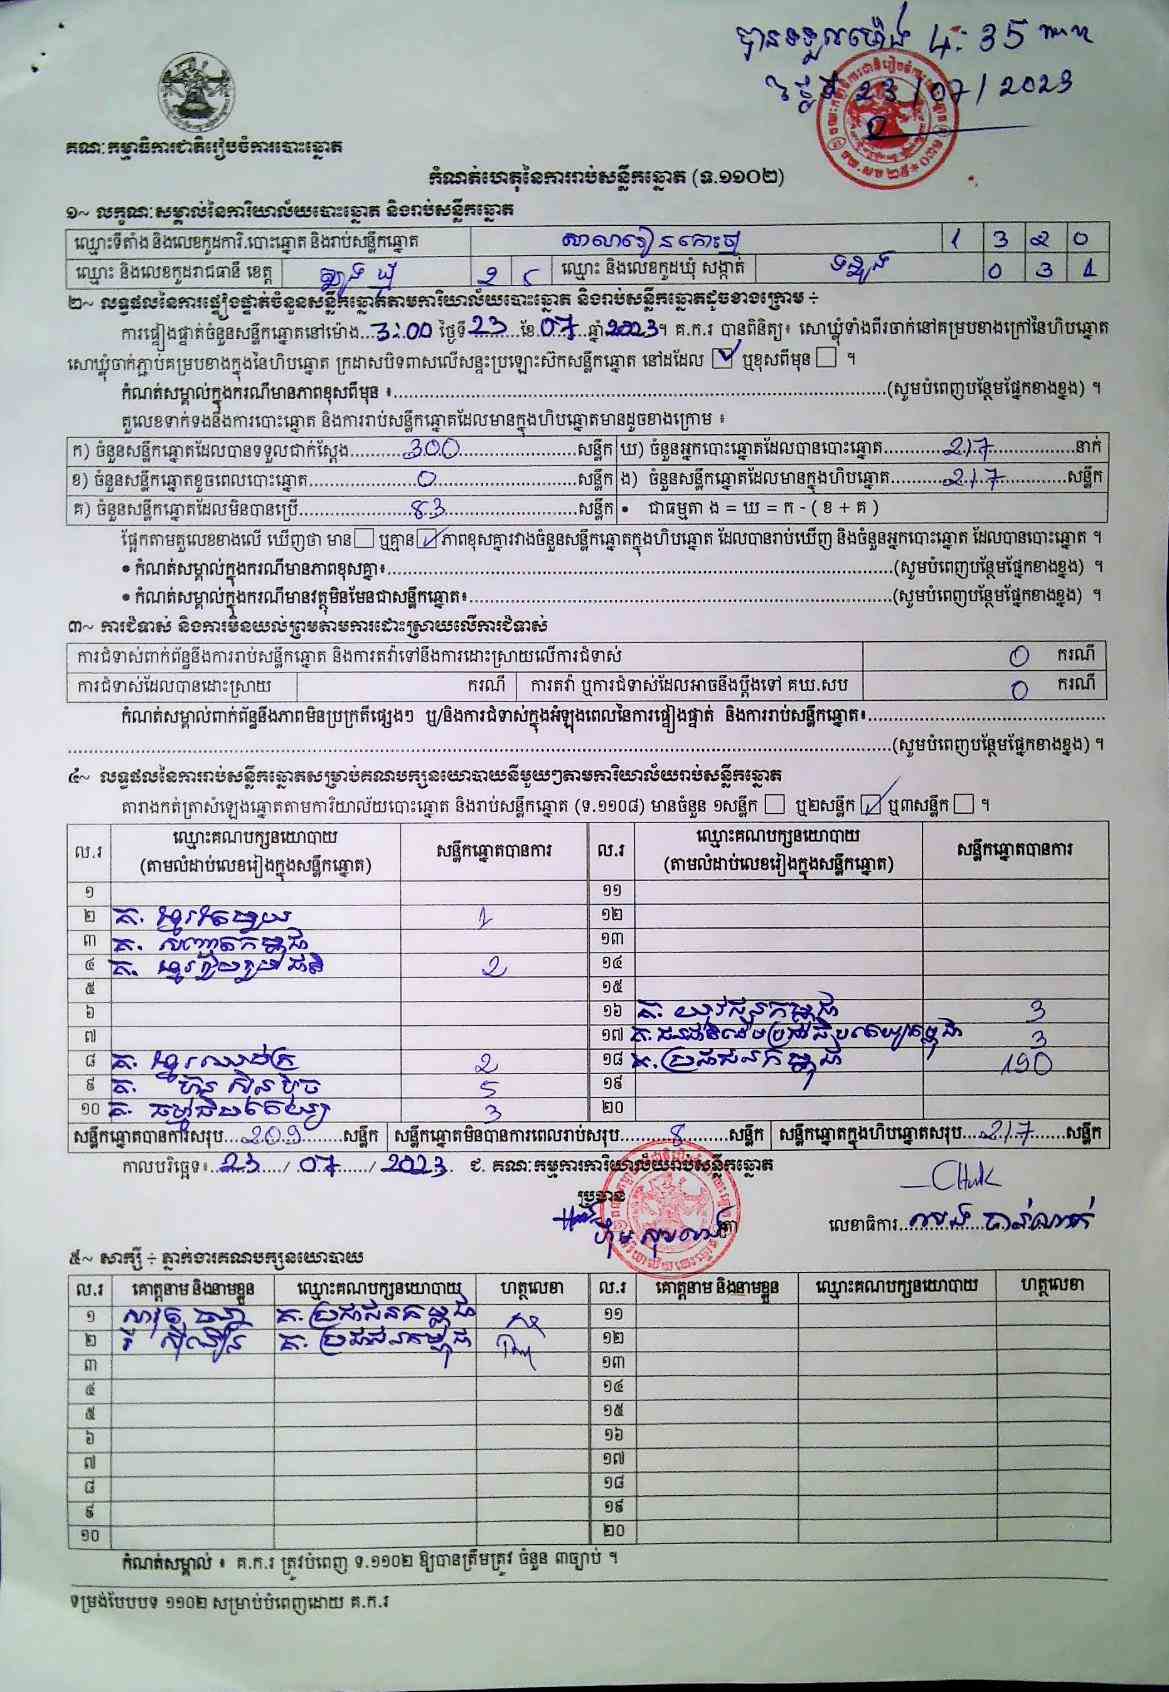 បានទទួលម៉ោង 4:35 នាទី
ថ្ងៃទី 23/07/2023
គណៈកម្មាធិការជាតិរៀបចំការបោះឆ្នោត
កំណត់ហេតុនៃការរាប់សន្លឹកឆ្នោត (ទ.១១០២)
១~ លក្ខណៈសម្គាល់នៃការិយាល័យបោះឆ្នោត និងរាប់សន្លឹកឆ្នោត
ឈ្មោះទីតាំង និងលេខកូដការិ.បោះឆ្នោត និងរាប់សន្លឹកឆ្នោត សាលារៀនកោះ 1 3 2 0
ឈ្មោះ និងលេខកូដរាជធានី ខេត្ត 2 ឈ្មោះ និងលេខកូដឃុំ សង្កាត់ 0 3 1
២~ លទ្ធផលនៃការផ្ទៀងផ្ទាត់ចំនួនសន្លឹកឆ្នោតតាមការិយាល័យបោះឆ្នោត និងរាប់សន្លឹកឆ្នោតដូចខាងក្រោម ÷
ការផ្ទៀងផ្ទាត់ចំនួនសន្លឹកឆ្នោតនៅម៉ោង...3:00 ថ្ងៃទី 23...ខែ.07...ឆ្នាំ2023។ គ.ក.រ បានពិនិត្យ៖ សោឃ្លុំទាំងពីរចាក់នៅគម្របខាងក្រៅនៃហិបឆ្នោត
សោឃ្លុំចាក់ភ្ជាប់គម្របខាងក្នុងនៃហិបឆ្នោត ក្រដាសបិទពាសលើសន្ទះប្រឡោះស៊កសន្លឹកឆ្នោត នៅដដែល ☑ ឬខុសពីមុន ☐ ។
កំណត់សម្គាល់ក្នុងករណីមានភាពខុសពីមុន ៖...(សូមបំពេញបន្ថែមផ្នែកខាងខ្នង) ។
តួលេខទាក់ទងនឹងការបោះឆ្នោត និងការរាប់សន្លឹកឆ្នោតដែលមានក្នុងហិបឆ្នោតមានដូចខាងក្រោម ៖
ក) ចំនួនសន្លឹកឆ្នោតដែលបានទទួលជាក់ស្តែង...300...សន្លឹក ឃ) ចំនួនអ្នកបោះឆ្នោតដែលបានបោះឆ្នោត...217...នាក់
ខ) ចំនួនសន្លឹកឆ្នោតខូចពេលបោះឆ្នោត...0...សន្លឹក ង) ចំនួនសន្លឹកឆ្នោតដែលមានក្នុងហិបឆ្នោត...217...សន្លឹក
គ) ចំនួនសន្លឹកឆ្នោតដែលមិនបានប្រើ...83...សន្លឹក • ជាធម្មតា ង = ឃ = ក - ( ខ + គ )
ផ្អែកតាមតួលេខខាងលើ ឃើញថា មាន ☐ ឬគ្មាន ☑ ភាពខុសគ្នារវាងចំនួនសន្លឹកឆ្នោតក្នុងហិបឆ្នោត ដែលបានរាប់ឃើញ និងចំនួនអ្នកបោះឆ្នោត ដែលបានបោះឆ្នោត ។
• កំណត់សម្គាល់ក្នុងករណីមានភាពខុសគ្នា៖...(សូមបំពេញបន្ថែមផ្នែកខាងខ្នង) ។
• កំណត់សម្គាល់ក្នុងករណីមានវត្ថុមិនមែនជាសន្លឹកឆ្នោត៖...(សូមបំពេញបន្ថែមផ្នែកខាងខ្នង) ។
៣~ ការជំទាស់ និងការមិនយល់ព្រមតាមការដោះស្រាយលើការជំទាស់
ការជំទាស់ពាក់ព័ន្ធនឹងការរាប់សន្លឹកឆ្នោត និងការតវ៉ាទៅនឹងការដោះស្រាយលើការជំទាស់ 0 ករណី
ការជំទាស់ដែលបានដោះស្រាយ ករណី ការតវ៉ា ឬការជំទាស់ដែលអាចនឹងប្តឹងទៅ គឃ.សប 0 ករណី
កំណត់សម្គាល់ពាក់ព័ន្ធនឹងភាពមិនប្រក្រតីផ្សេងៗ ឬ/និងការជំទាស់ក្នុងអំឡុងពេលនៃការផ្ទៀងផ្ទាត់ និងការរាប់សន្លឹកឆ្នោត៖...
...(សូមបំពេញបន្ថែមផ្នែកខាងខ្នង) ។
៤~ លទ្ធផលនៃការរាប់សន្លឹកឆ្នោតសម្រាប់គណបក្សនយោបាយនីមួយៗតាមការិយាល័យរាប់សន្លឹកឆ្នោត
តារាងកត់ត្រាសំឡេងឆ្នោតតាមការិយាល័យបោះឆ្នោត និងរាប់សន្លឹកឆ្នោត (ទ.១១០៨) មានចំនួន ១សន្លឹក ☐ ឬ២សន្លឹក ☑ ឬ៣សន្លឹក ☐ ។
ល.រ ឈ្មោះគណបក្សនយោបាយ សន្លឹកឆ្នោតបានការ ល.រ ឈ្មោះគណបក្សនយោបាយ សន្លឹកឆ្នោតបានការ
(តាមលំដាប់លេខរៀងក្នុងសន្លឹកឆ្នោត) (តាមលំដាប់លេខរៀងក្នុងសន្លឹកឆ្នោត)
១ ១១
២ គ. ខ្មែរតែមួយ 1 ១២
៣ គ. សញ្ជាតិកម្ពុជា ១៣
៤ គ. ខ្មែររួបរួមជាតិ 2 ១៤
៥ ១៥
៦ ១៦ គ. យុវជនកម្ពុជា 3
៧ ១៧ 3
៨ គ. ខ្មែរឈប់ក្រ 2 ១៨ គ.ប្រជាជនកម្ពុជា 190
៩ គ. ហ៊្វុនស៊ិនប៉ិច 5 ១៩
១០ គ. ធម្មាធិបតេយ្យ 3 ២០
សន្លឹកឆ្នោតបានការសរុប...209...សន្លឹក សន្លឹកឆ្នោតមិនបានការពេលរាប់សរុប...8...សន្លឹក សន្លឹកឆ្នោតក្នុងហិបឆ្នោតសរុប...217...សន្លឹក
កាលបរិច្ឆេទ៖..23../ 07 .../ 2023. ជ. គណៈកម្មការការិយាល័យរាប់សន្លឹកឆ្នោត
ប្រធាន
លេខាធិការ
៥~ សាក្សី ÷ ភ្នាក់ងារគណបក្សនយោបាយ
ល.រ គោត្តនាម និងនាមខ្លួន ឈ្មោះគណបក្សនយោបាយ ហត្ថលេខា ល.រ គោត្តនាម និងនាមខ្លួន ឈ្មោះគណបក្សនយោបាយ ហត្ថលេខា
១ គ. ប្រជាជនកម្ពុជា ១១
២ គ. ប្រជាជនកម្ពុជា ១២
៣ ១៣
៤ ១៤
៥ ១៥
៦ ១៦
៧ ១៧
៨ ១៨
៩ ១៩
១០ ២០
កំណត់សម្គាល់ ៖ គ.ក.រ ត្រូវបំពេញ ទ.១១០២ ឱ្យបានត្រឹមត្រូវ ចំនួន ៣ច្បាប់ ។
ទម្រង់បែបបទ ១១០២ សម្រាប់បំពេញដោយ គ.ក.រ